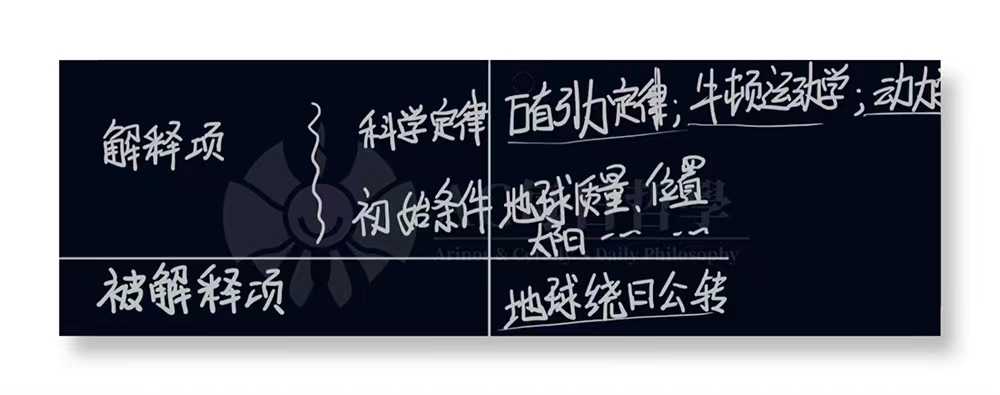 解释项
科学定律
万有引力定律；牛顿运动学；动力
初始条件
地球质量、位置
太阳 ---- ----
被解释项
地球绕日公转
哲學
Daily Philosophy